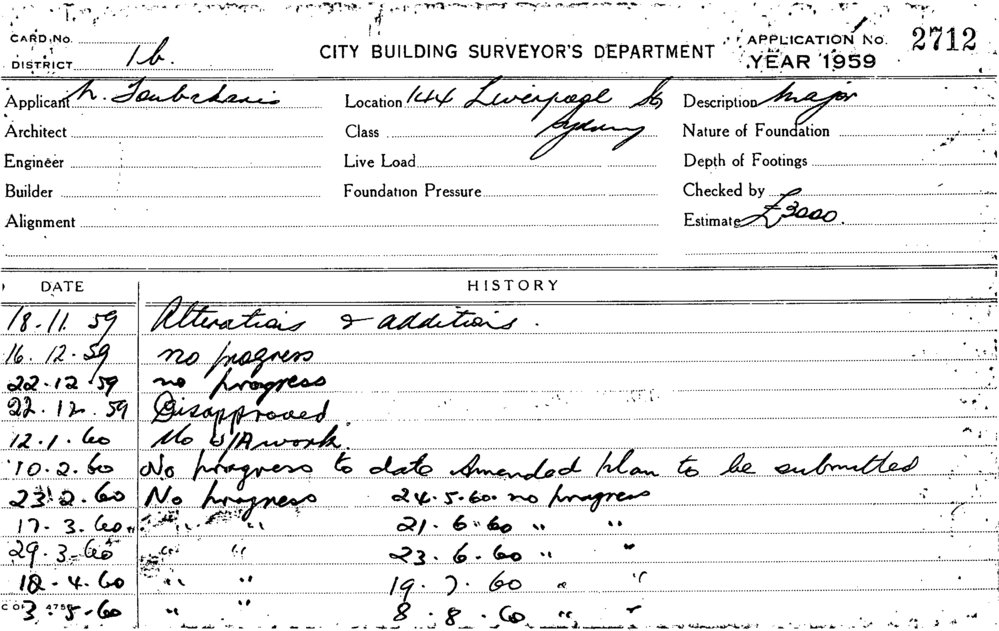 CARD NO.
DISTRICT 1b.
CITY BUILDING SURVEYOR'S DEPARTMENT
APPLICATION No. 2712
YEAR 1959
Applicant N. Location 144 Liverpool St Sydney Description Major
Architect Class Nature of Foundation
Engineer Live Load Depth of Footings
Builder Foundation Pressure Checked by
Alignment Estimate £3000.
DATE HISTORY
18.11.59 Alterations & additions.
16.12.59 no progress
22.12.59 no progress
22.12.59 Disapproved
12.1.60 No U/A work.
10.2.60 No progress to date Amended plan to be submitted
23.2.60 No progress 24.5.60. no progress
17.3.60 " " 21.6.60 " "
29.3.60 " " 23.6.60 " "
12.4.60 " " 19.7.60 " "
3.5.60 " " 8.8.60 " "